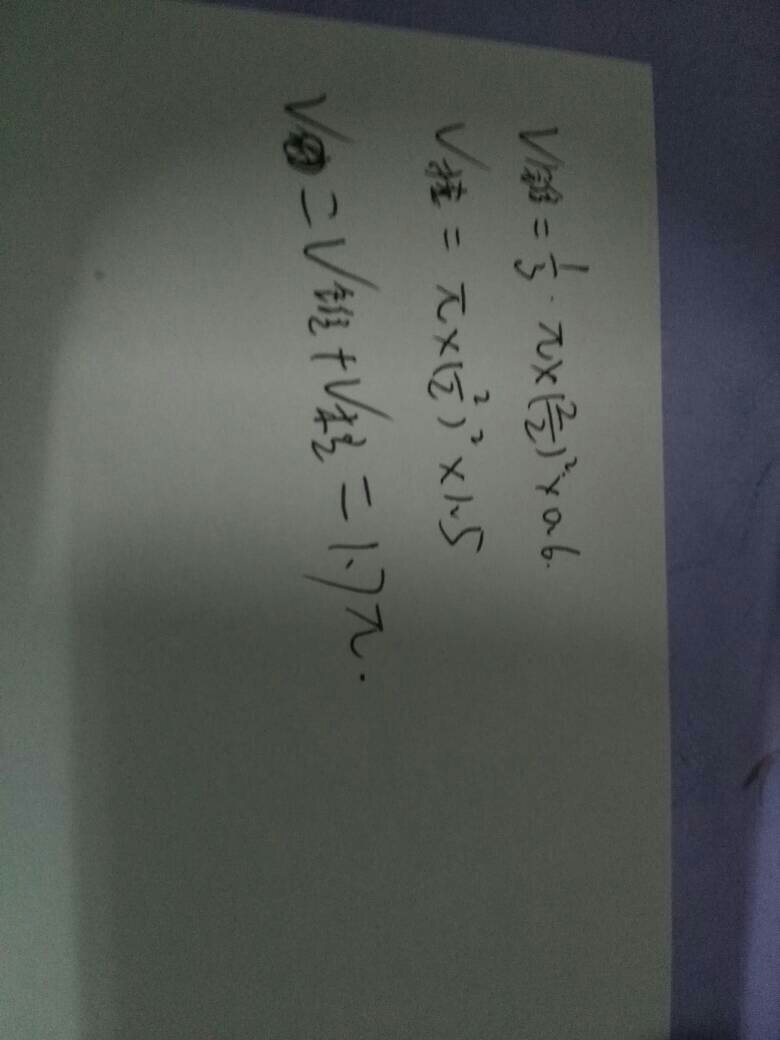 V锥=1/3·π×(2/2)²×0.6.
V柱=π×(2/2)²×1.5
V=V锥+V柱=1.7π.